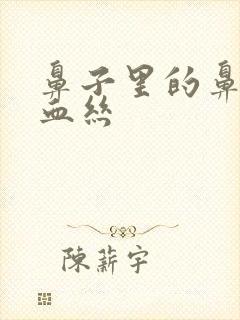 鼻子里的鼻
血絲
陳薪宇